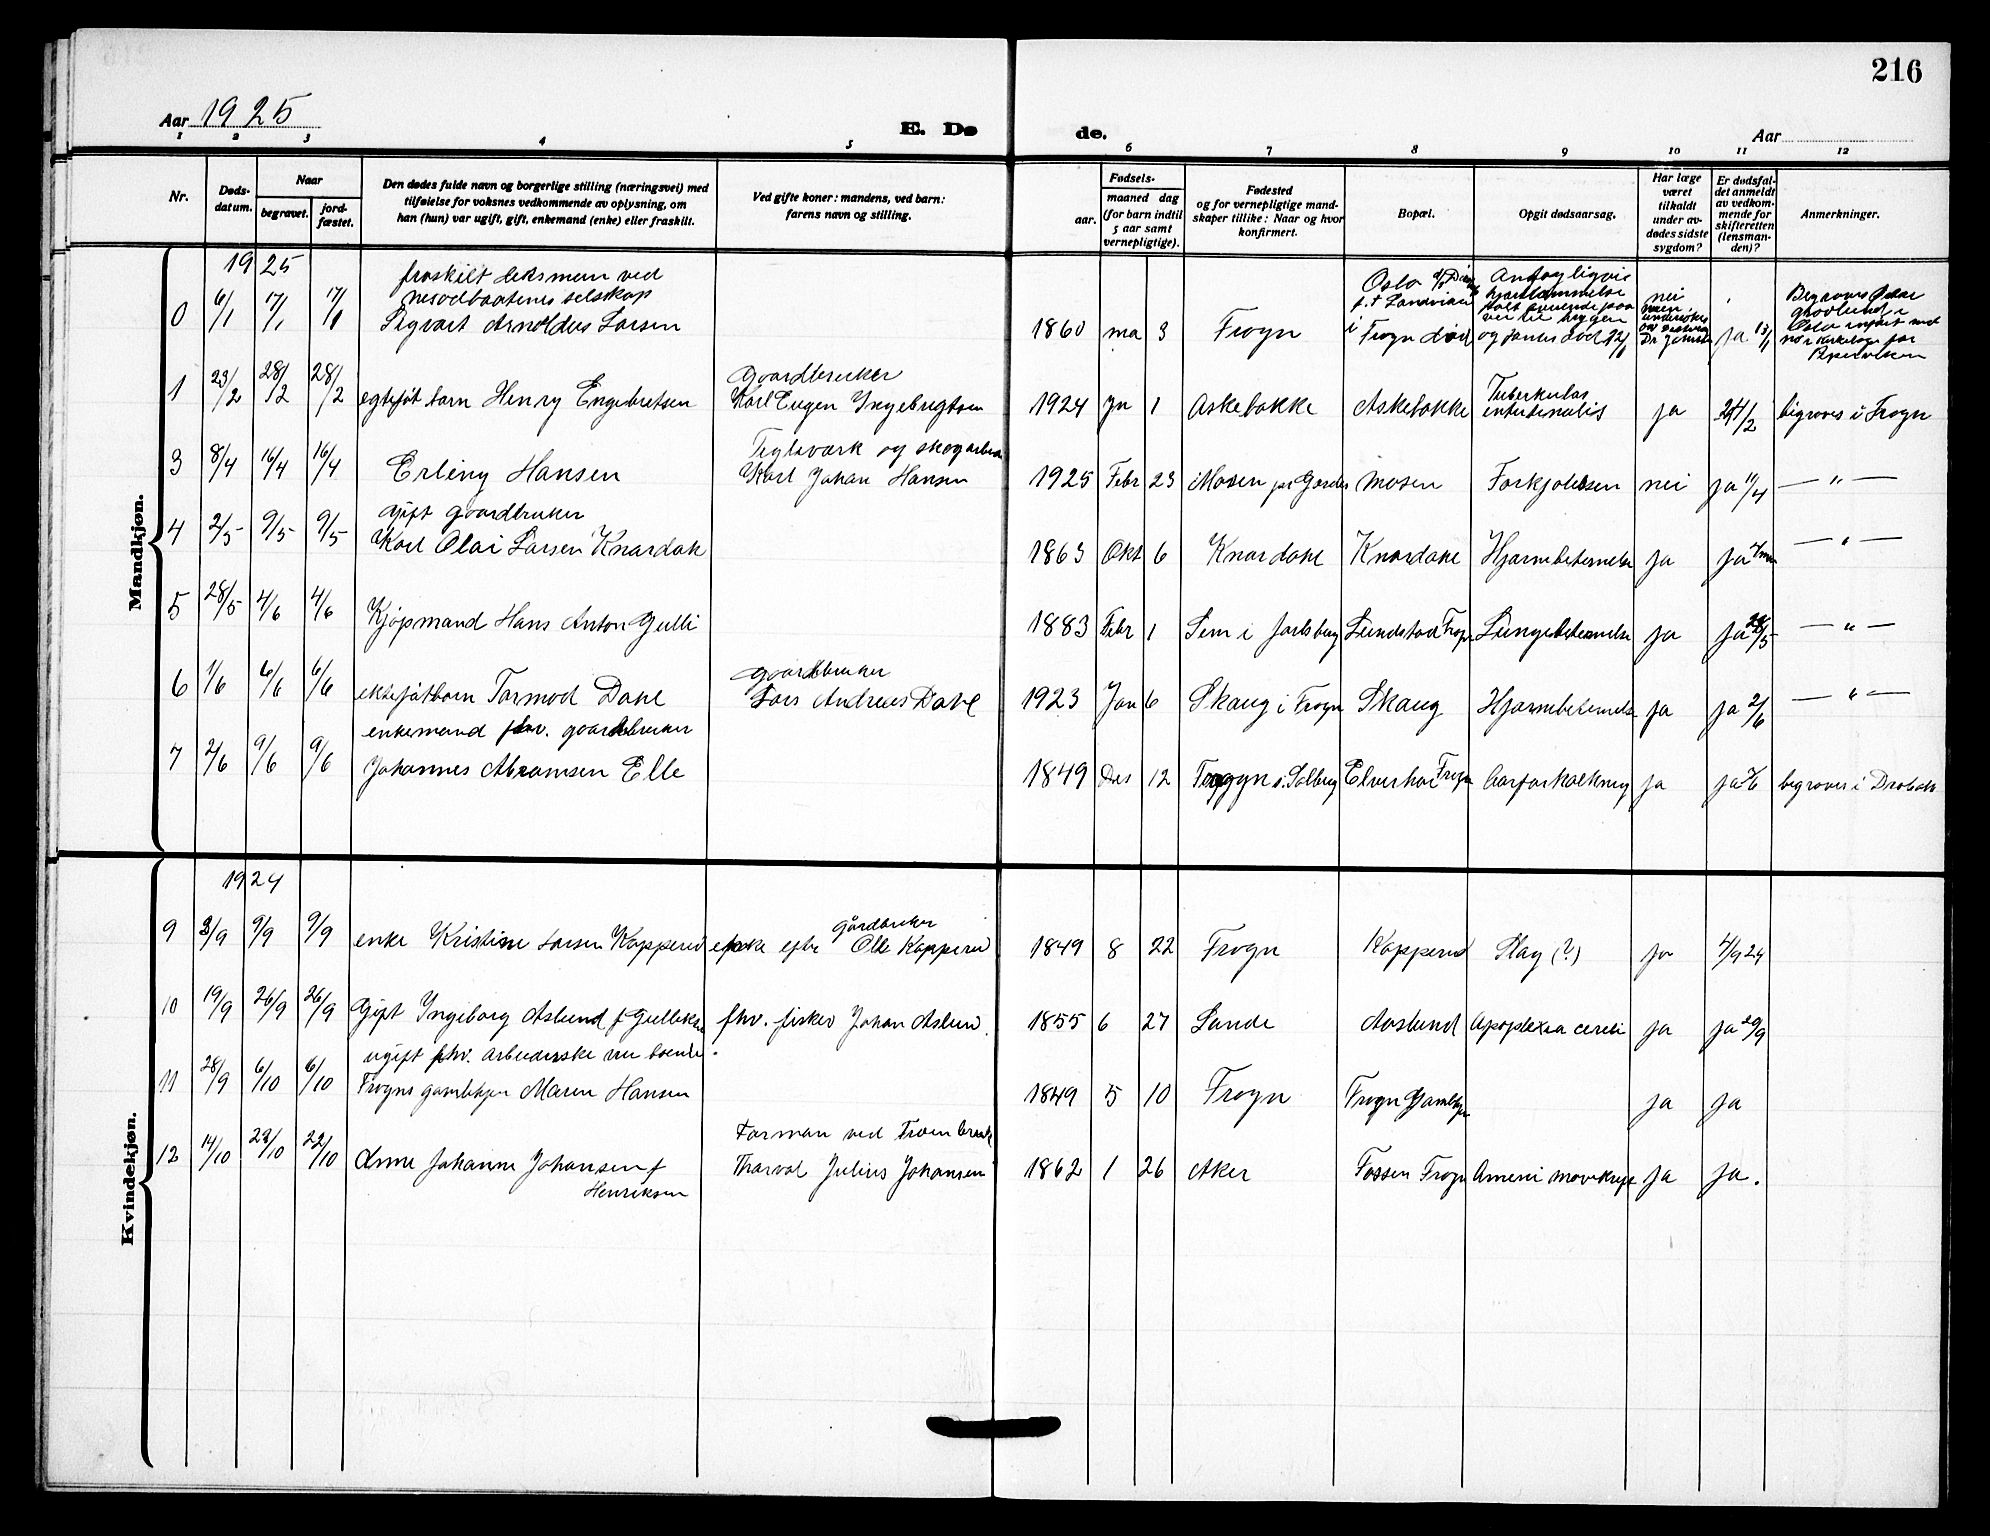 216
Aar 1925
E. Dø
de.
Aar
1 2 3 4 5 6 7 8 9 10 11 12
Nr.
Døds-
datum.
Naar
begravet.
jord-
fæstet.
Den dødes fulde navn og borgerlige stilling (næringsvei) med
tilføielse for voksnes vedkommende av oplysning, om
han (hun) var ugift, gift, enkemand (enke) eller fraskilt.
Ved gifte koner: mandens, ved barn:
farens navn og stilling.
Fødsels-
aar.
maaned dag
(for barn indtil
5 aar samt
vernepligtige).
Fødested
og for vernepligtige mand-
skaper tillike: Naar og hvor
konfirmert.
Bopæl.
Opgit dødsaarsag.
Har læge
været
tilkaldt
under av-
dødes sidste
sygdom?
Er dødsfal-
det anmeldt
av vedkom-
mende for
skifteretten
(lensman-
den)?
Anmerkninger.
Mandkjøn.
1925
fraskilt ved
nesodbaatenes selskap
0 6/1 17/1 17/1 Sigvart Arnoldus Larsen 1860 ma 3 Frogn Oslo i Frogn død og 12/1 nei ja 13/1
Begraves
gravlund i
Oslo
gaardbruker
1 23/2 28/2 28/2 egteføt barn Henry Engebretsen Karl Eugen Yngebrigtsen 1924 Jn 1 Askebakke Askebakke Tuberkulos intestinalis ja 24/2 begraves i Frogn
Teglverk og
3 8/4 16/4 16/4 Erling Hansen Karl Johan Hansen 1925 Febr 23 Mosen Mosen Forkjølelsen nei ja 11/4 — " —
Gift gaardbruker
4 2/5 9/5 9/5 Karl Olai Larsen Knardak 1863 Okt 6 Knardake Knardake Hjernebetennelse ja ja — " —
5 28/5 4/6 4/6 Kjøpmand Hans Anton Gulli 1883 Febr 1 Sem i Jarlsberg Lundstad Frogn Lungebetennelse ja ja 28/5 — " —
gaardbruker
6 1/6 6/6 6/6 ekteføtbarn Tormod Dahl Lars Andreas Dahl 1923 Jan 6 Skaug i Frogn Skaug Hjernebetennelse ja ja 2/6 — " —
enkemand fhv. gaardbruker
7 2/6 9/6 9/6 Johannes Abramsen Elle 1849 Des 12 Frogn Aarforkalkning ja ja begraves i Drøbak
Kvindekjøn.
1924
gårdbruker
9 3/9 9/9 9/9 enke Kristine Larsen Kopperud enke efter Olle Kopperud 1849 8 22 Frogn Kopperud Slag (?) ja 4/9 24
10 19/9 26/9 26/9 Gift Ingeborg Aslund f Gulliksen fhv. fisker Johan Aslund. 1855 6 27 Sande Aaslund Apoplexia cerebri ja ja 20/9
ugift fhv. arbeiderske nu boende
11 28/9 6/10 6/10 Frogns gamlehjem Maren Hansen 1849 5 10 Frogn Frogn Gamlehjem ja ja
Forman ved
12 14/10 23/10 22/10 Anne Johanne Johansen f Torval Julius Johansen 1862 1 26 Aker Fossen Frogn ja ja.
Henriksen